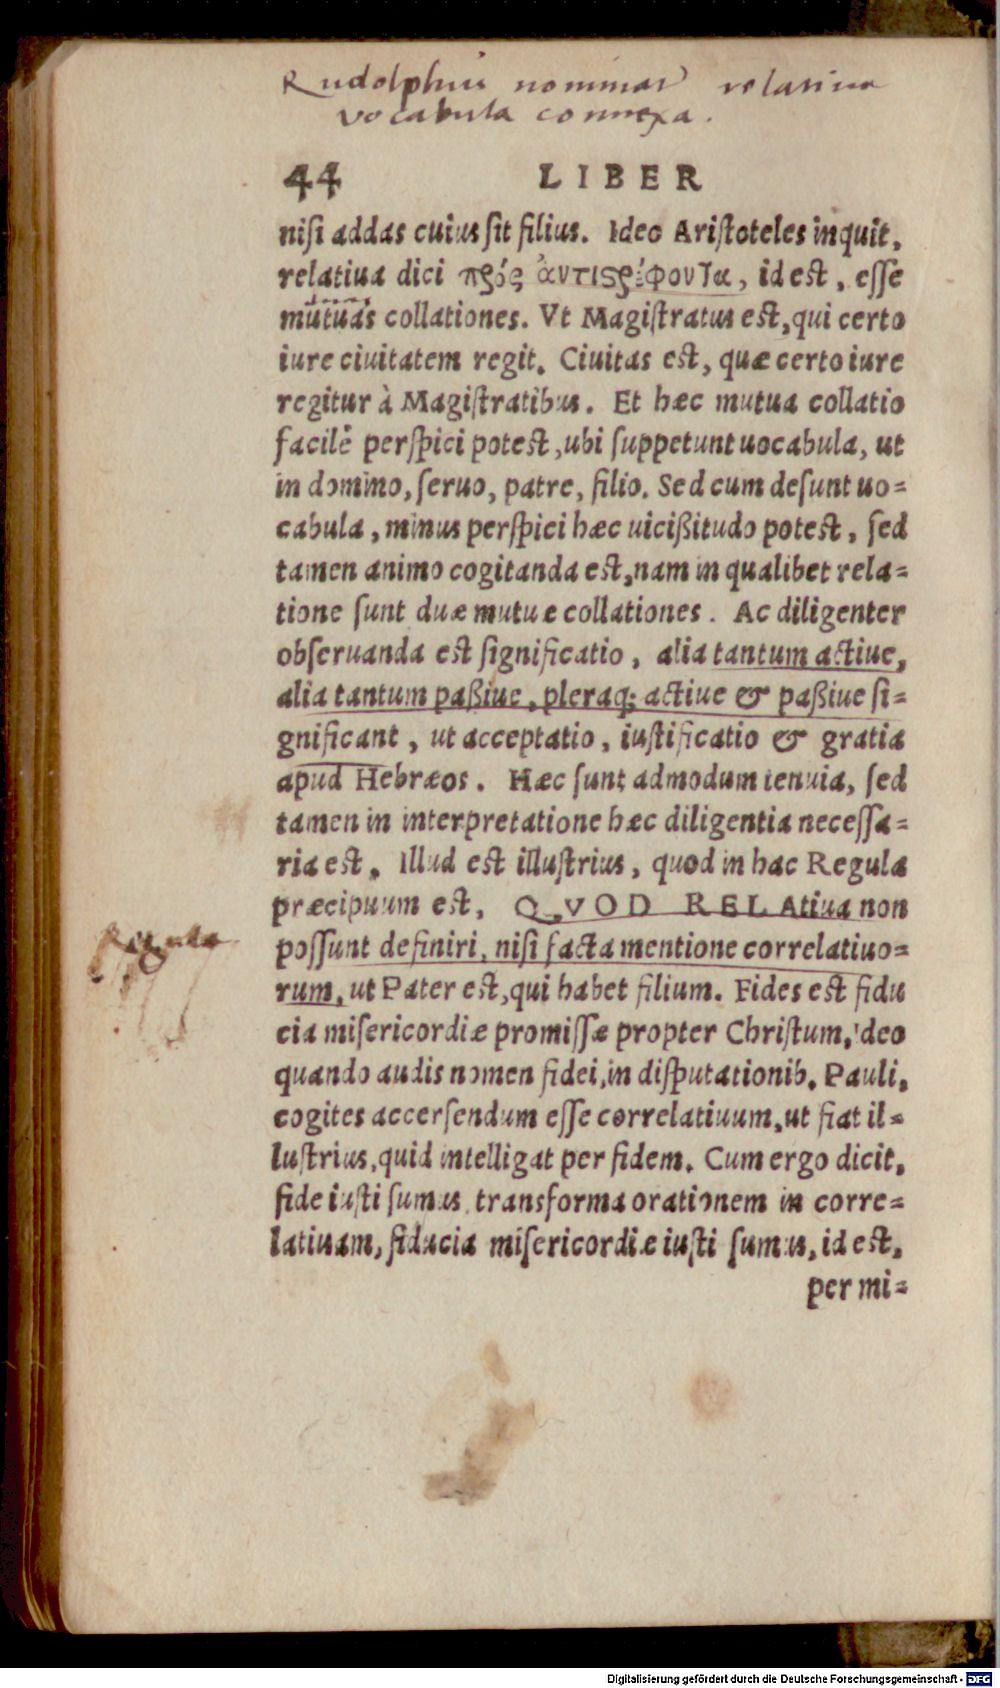 Rudolphus nominat relatiua
vocabula connexa.
44 LIBER
niſi addas cuius ſit filius. Ideo Ariſtoteles inquit,
relatiua dici πρός ἀντιςρέφοντα, id est, eſſe
mutuas collationes. Vt Magiſtratus est, qui certo
iure ciuitatem regit. Ciuitas est, quæ certo iure
regitur à Magiſtratibus. Et hæc mutua collatio
facilè perſpici potest, ubi ſuppetunt uocabula, ut
in domino, ſeruo, patre, filio. Sed cum deſunt uo=
cabula, minus perſpici hæc uicißitudo potest, ſed
tamen animo cogitanda est, nam in qualibet rela=
tione ſunt duæ mutuæ collationes. Ac diligenter
obſeruanda est ſignificatio, alia tantum actiue,
alia tantum paßiue, pleraq; actiue & paßiue ſi=
gnificant, ut acceptatio, iuſtificatio & gratia
apud Hebræos. Hæc ſunt admodum tenuia, ſed
tamen in interpretatione hæc diligentia neceſſa=
ria est. Illud est illuſtrius, quod in hac Regula
præcipuum est, QVOD RELAtiua non
poſſunt definiri, niſi facta mentione correlatiuo=
Regula
rum, ut Pater est, qui habet filium. Fides est fidu
cia miſericordiæ promiſſæ propter Chriſtum, ideo
quando audis nomen fidei, in diſputationib. Pauli,
cogites accerſendum eſſe correlatiuum, ut fiat il=
luſtrius, quid intelligat per fidem. Cum ergo dicit,
fide iuſti ſumus transforma orationem in corre=
latiuam, fiducia miſericordiæ iuſti ſumus, id est,
per mi=
Digitalisierung gefördert durch die Deutsche Forschungsgemeinschaft - DFG